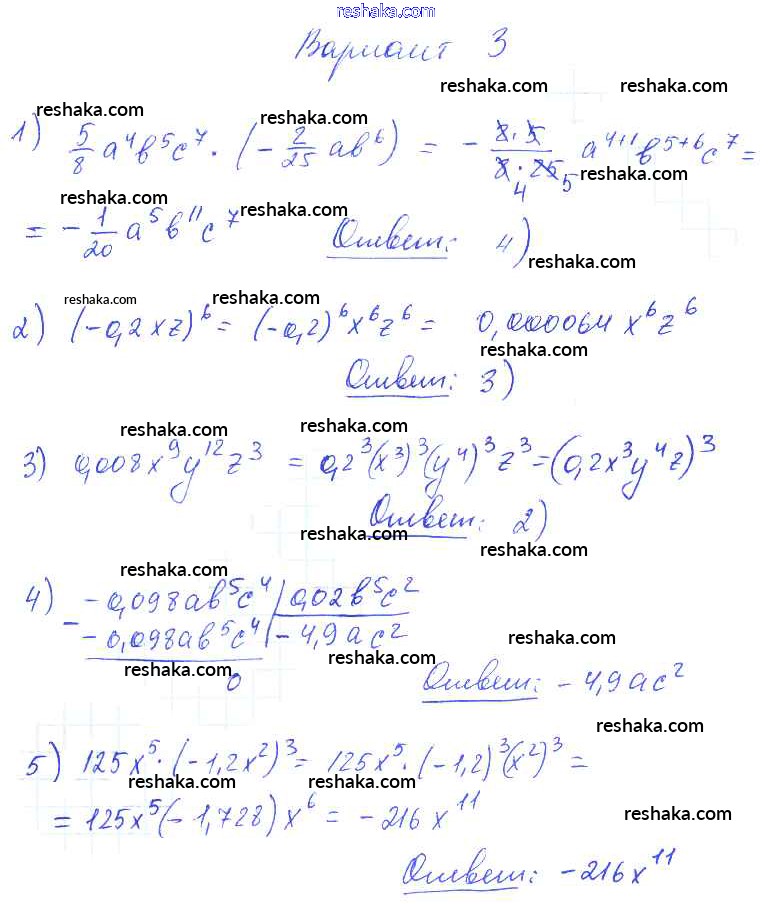 reshaka.com
Вариант 3
reshaka.com reshaka.com reshaka.com reshaka.com
1) 5/8 a⁴b⁵c⁷ · (-2/25 ab⁶) = - 2·5/8·25 a⁴⁺¹b⁵⁺⁶c⁷ =
4 5 reshaka.com
= - 1/20 a⁵b¹¹c⁷ Ответ: 4)
reshaka.com reshaka.com reshaka.com
reshaka.com reshaka.com
2) (-0,2xz)⁶ = (-0,2)⁶x⁶z⁶ = 0,000064x⁶z⁶
reshaka.com
Ответ: 3)
reshaka.com reshaka.com
3) 0,008x⁹y¹²z³ = 0,2³(x³)³(y⁴)³z³ = (0,2x³y⁴z)³
Ответ: 2)
reshaka.com reshaka.com
reshaka.com reshaka.com
4) - -0,098ab⁵c⁴ | 0,02b⁵c²
-0,098ab⁵c⁴ | -4,9ac²
reshaka.com reshaka.com reshaka.com
0 Ответ: -4,9ac²
reshaka.com
5) 125x⁵·(-1,2x²)³ = 125x⁵·(-1,2)³(x²)³ =
reshaka.com reshaka.com
= 125x⁵(-1,728)x⁶ = -216x¹¹
reshaka.com
Ответ: -216x¹¹
reshaka.com